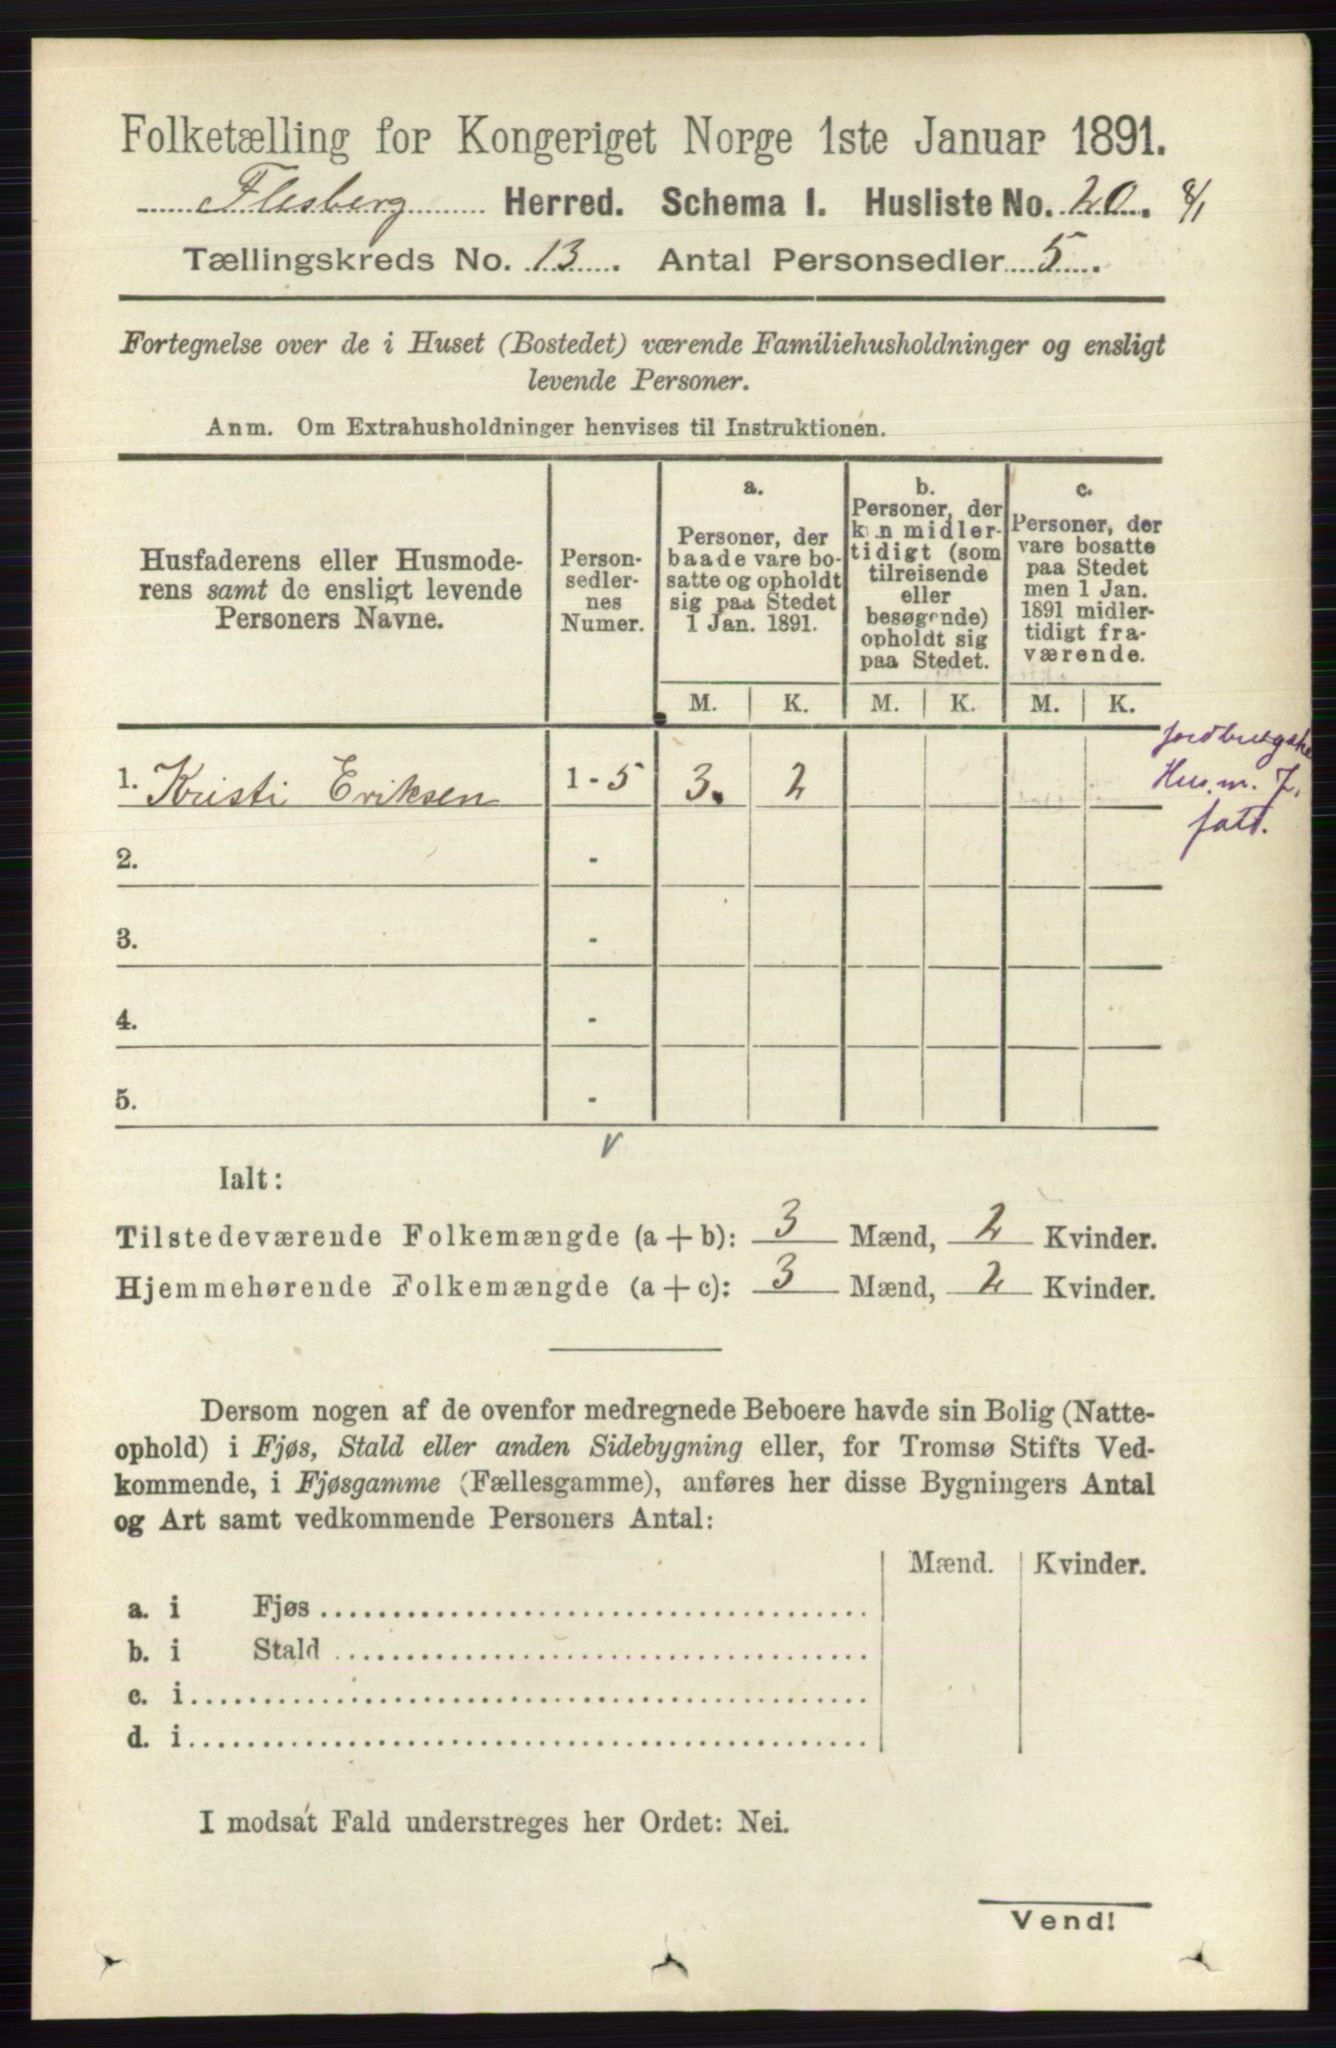 Folketælling for Kongeriget Norge 1ste Januar 1891.
Flesberg Herred. Schema I. Husliste No. 20. 8/1
Tællingskreds No. 13. Antal Personsedler 5.
Fortegnelse over de i Huset (Bostedet) værende Familiehusholdninger og ensligt
levende Personer.
Anm. Om Extrahusholdninger henvises til Instruktionen.
Husfaderens eller Husmode-
rens samt de ensligt levende
Personers Navne.
Person-
sedler-
nes
Numer.
a.
Personer, der
baade vare bo-
satte og opholdt
sig paa Stedet
1 Jan. 1891.
b.
Personer, der
kun midler-
tidigt (som
tilreisende
eller
besøgende)
opholdt sig
paa Stedet.
c.
Personer, der
vare bosatte
paa Stedet
men 1 Jan.
1891 midler-
tidigt fra-
værende.
M. K. M. K. M. K.
1. Kristi Eriksen 1 - 5 3. 2
Hus.m. J.
fatt.
2. -
3. -
4. -
5. -
Ialt:
Tilstedeværende Folkemængde (a + b): 3 Mænd, 2 Kvinder.
Hjemmehørende Folkemængde (a + c): 3 Mænd, 2 Kvinder.
Dersom nogen af de ovenfor medregnede Beboere havde sin Bolig (Natte-
ophold) i Fjøs, Stald eller anden Sidebygning eller, for Tromsø Stifts Ved-
kommende, i Fjøsgamme (Fællesgamme), anføres her disse Bygningers Antal
og Art samt vedkommende Personers Antal:
Mænd. Kvinder.
a. i Fjøs
b. i Stald
c. i
d. i
I modsat Fald understreges her Ordet: Nei.
Vend!